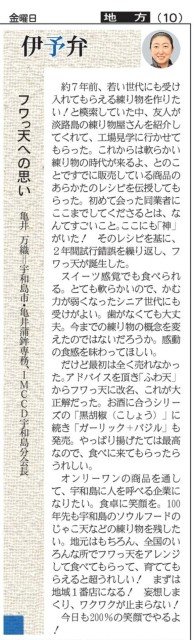 金曜日
地方
(10)
伊予弁
フワっ天への思い
亀井 万織＝宇和島市・亀井蒲鉾専務、IMCCD宇和島分会長
約７年前、若い世代にも受け
入れてもらえる練り物を作りた
い！と模索していた中、友人が
淡路島の練り物屋さんを紹介し
てくれて、工場見学に行かせて
もらった。これからは軟らかい
練り物の時代が来るよ、とのこ
とですでに販売している商品の
あらかたのレシピを伝授しても
らった。初めて会った同業者に
ここまでしてくださるとは、な
んてすごいこと。ここにも「神」
がいた！　そのレシピを基に、
２年間試行錯誤を繰り返し、フ
ワっ天が誕生した。
スイーツ感覚でも食べられ
る。とても軟らかいので、かむ
力が弱くなったシニア世代にも
受けがよい。歯がなくても大丈
夫。今までの練り物の概念を変
えたのではないだろうか。感動
の食感を味わってほしい。
だけど最初は全く売れなかっ
た。アドバイスを頂き「ふわ天」
からフワっ天に改名、これが大
正解だった。お酒に合うシリー
ズの「黒胡椒（こしょう）」に
続き「ガーリック＋バジル」も
発売。やっぱり揚げたては最高
なので、食べに来てもらったら
うれしい。
オンリーワンの商品を通し
て、宇和島に人を呼べる企業に
なりたい。食卓に笑顔を。１００
年先も宇和島のソウルフードの
じゃこ天などの練り物を残した
い。地元はもちろん、全国のい
ろんな所でフワっ天をアレンジ
して食べてもらって、育てても
らえると超うれしい！　まずは
地域１番店になる！　妄想しま
くり、ワクワクが止まらない！
今日も２００％の笑顔でやるよ！